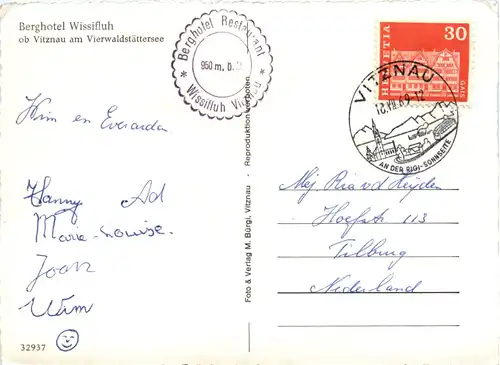 Berghotel Wissifluh
ob Vitznau am Vierwaldstättersee
* Berghotel Restaurant *
950 m. ü.
Wissifluh Vitznau
HELVETIA
30
GAIS
VITZNAU
AN DER RIGI-SONNSEITE
Wim en Everarden
Hanny Ad
Marie-Louise.
Joan
Wim
32937
Foto & Verlag M. Bürgi, Vitznau - Reproduktion verboten
Mej. Ria v d Heyden
113
Tilburg
Nederland